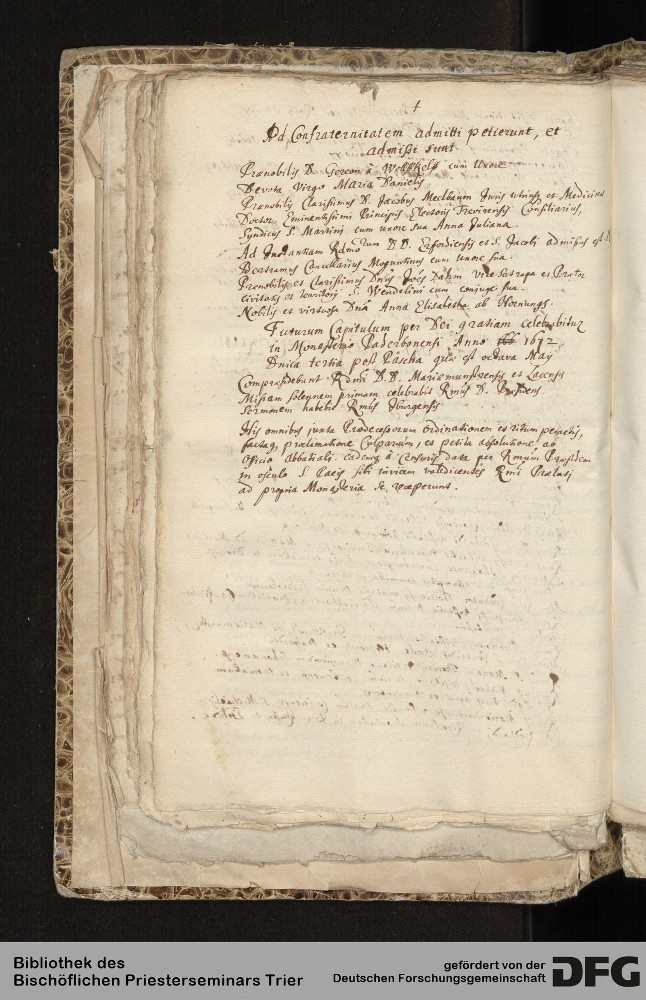 Ad Confraternitatem admitti petierunt, et
admissi sunt.
Prænobilis D. Gereon à cum Uxore
Devota Virgo Maria Danielis
Prænobilis Clarissimus D. Jacobus Meelbaum Juris utriusq et Medicinæ
Doctor, Eminentissimi Principis Electoris Trevirensis Consiliarius,
Syndicus S. Martini cum uxore sua Anna Juliana.
Ad Instantiam Rdmorum D D. Erfordiensis et S. Jacobi admissus est D.
Bertramus Cancellarius Moguntinus cum uxore sua.
Prænobilis et Clarissimus Dnus Joes Dahm Vice Satrapa et Prætor
Civitatis et territorij S. Wendelini cum conjuge sua.
Nobilis et virtuosa Dna Anna Elisabetha ab Hornungs.
Futurum Capitulum per Dei gratiam celebrabitur
in Monasterio Paderbonensi Anno 1672
Dnica tertia post Pascha quæ est octava Maÿ
Compræsidebunt Rdmi D.D. Mariæmunstrensis et Lacensis
Missam solennem primam celebrabit Rmus D. Præsidens
Sermonem habebit Rmus Iburgensis
His omnibus juxta Prædecessorum ordinationem et ritum peractis,
factaq proclamatione Culparum, et petita absolutione ab
Officio Abbatiali, eademq à Censoris data per Rmum Præsidem
in osculo S. Pacis sibi invicem valedicentes Rmi Prælati
ad propria Monasteria se receperunt.
Bibliothek des
Bischöflichen Priesterseminars Trier
gefördert von der
Deutschen Forschungsgemeinschaft
DFG